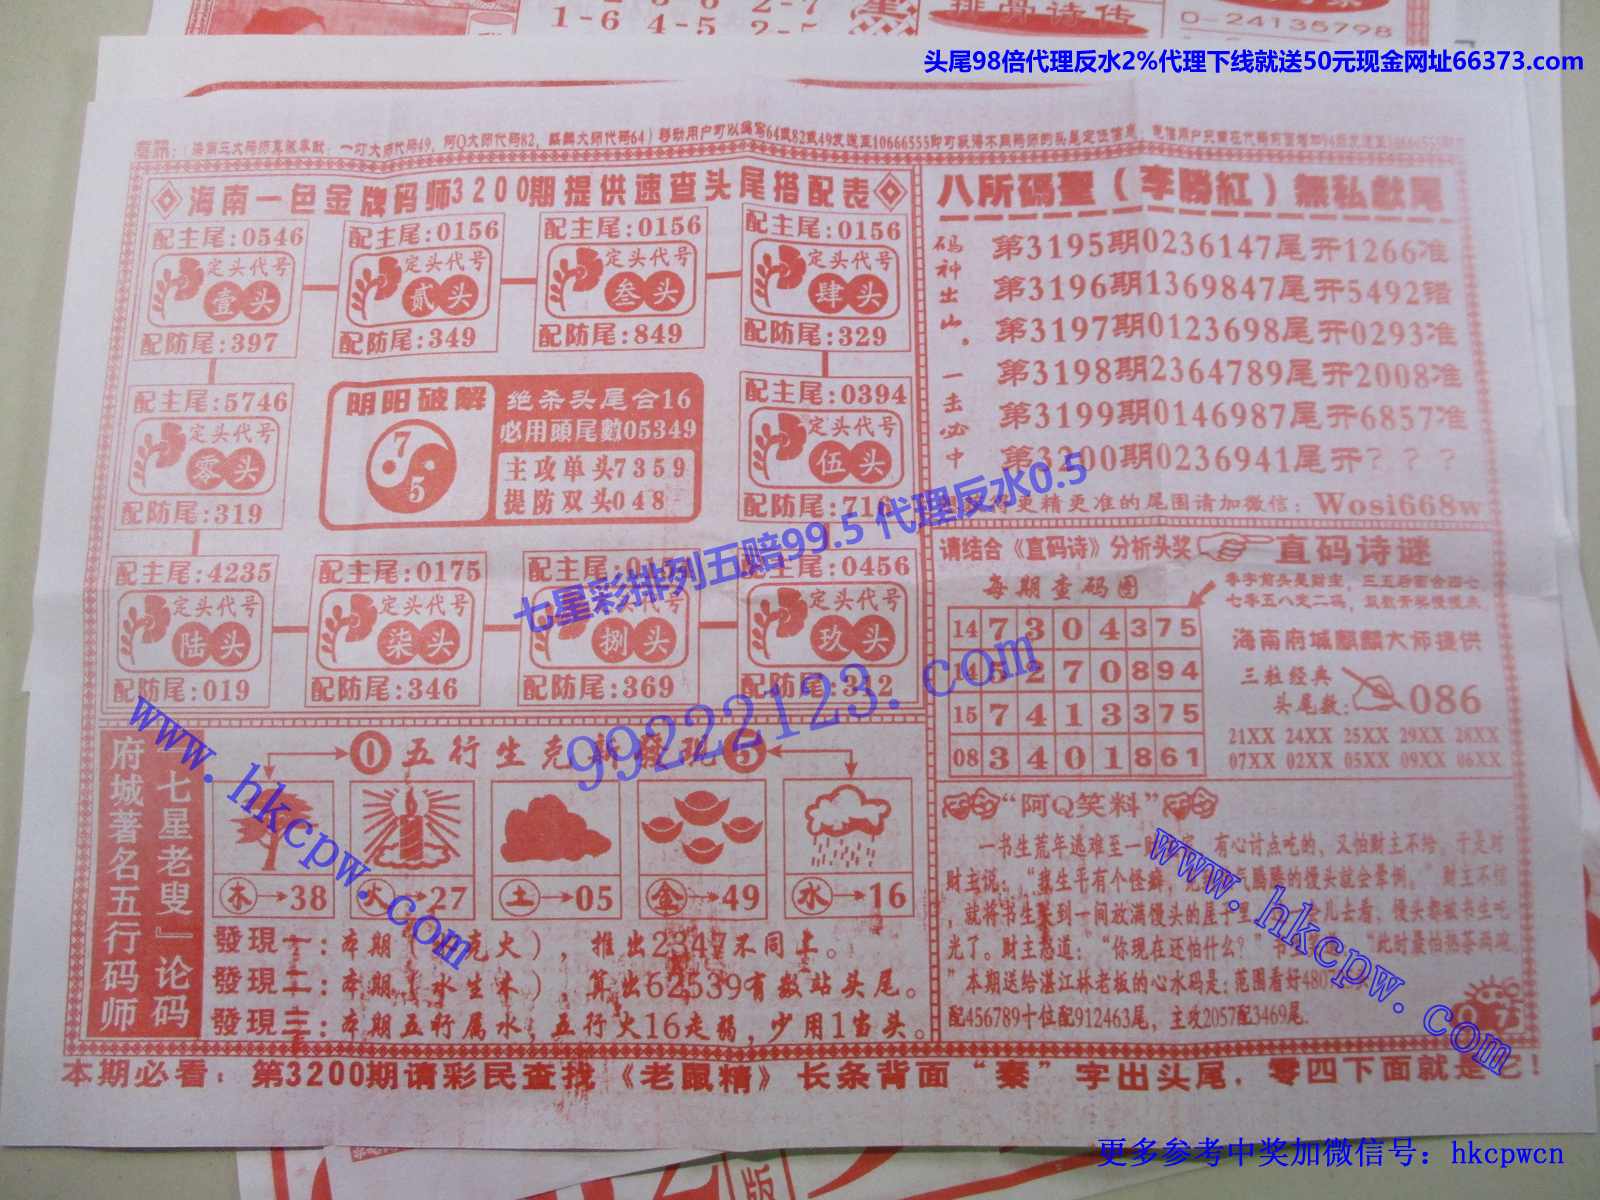 1-6 4-5 2-5
排骨诗传
0-24135798
头尾98倍代理反水2%代理下线就送50元现金网址66373.com
海南一色金牌码师3200期提供速查头尾搭配表
配主尾:0546
定头代号
壹头
配防尾:397
配主尾:0156
定头代号
贰头
配防尾:349
配主尾:0156
定头代号
叁头
配防尾:849
配主尾:0156
定头代号
肆头
配防尾:329
配主尾:5746
定头代号
零头
配防尾:319
阴阳破解
7
5
绝杀头尾合16
必用頭尾數05349
主攻单头7359
提防双头048
配主尾:0394
定头代号
伍头
配防尾:716
配主尾:4235
定头代号
陆头
配防尾:019
配主尾:0175
定头代号
柒头
配防尾:346
定头代号
捌头
配防尾:369
配主尾:0456
定头代号
玖头
配防尾:312
七星彩排列五赔99.5 代理反水0.5
99222123.com
八所码聖(李勝紅)無私献尾
码神出山。一击必中
第3195期0236147尾开1266准
第3196期1369847尾开5492错
第3197期0123698尾开0293准
第3198期2364789尾开2008准
第3199期0146987尾开6857准
第3200期0236941尾开???
更精更准的尾围请加微信:Wosi668w
请结合《直码诗》分析头奖
直码诗谜
每期查码图
14 7 3 0 4 3 7 5
14 5 2 7 0 8 9 4
15 7 4 1 3 3 7 5
08 3 4 0 1 8 6 1
海南府城麒麟大师提供
三粒经典
头尾数:086
21XX 24XX 25XX 29XX 28XX
07XX 02XX 05XX 09XX 06XX
府城著名五行码师
七星老叟』论码
0 五行生克
5
木→38
火→27
土→05
金→49
水→16
發現一:本期 克火),推出2347不同上。
發現二:本期(水生木),算出62539有数站头尾。
發現三:本期五行属水,五行火16走弱,少用1当头。
“阿Q笑料”
一书生荒年逃难至一财 有心讨点吃的,又怕财主不给,于是对
财主说:“我生平有个怪癖, 腾腾的馒头就会晕倒。”财主不信
,就将书生关到一间放满馒头的屋子里 儿去看,馒头都被书生吃
光了。财主怒道:“你现在还怕什么?” “此时最怕热茶两碗
”本期送给湛江林老板的心水码是:范围看好480
配456789十位配912463尾,主攻2057配3469尾.
本期必看:第3200期请彩民查找《老鼠精》长条背面“秦”字出头尾.零四下面就是它!
www.hkcpw.com
www.hkcpw.com
更多参考中奖加微信号:hkcpwcn